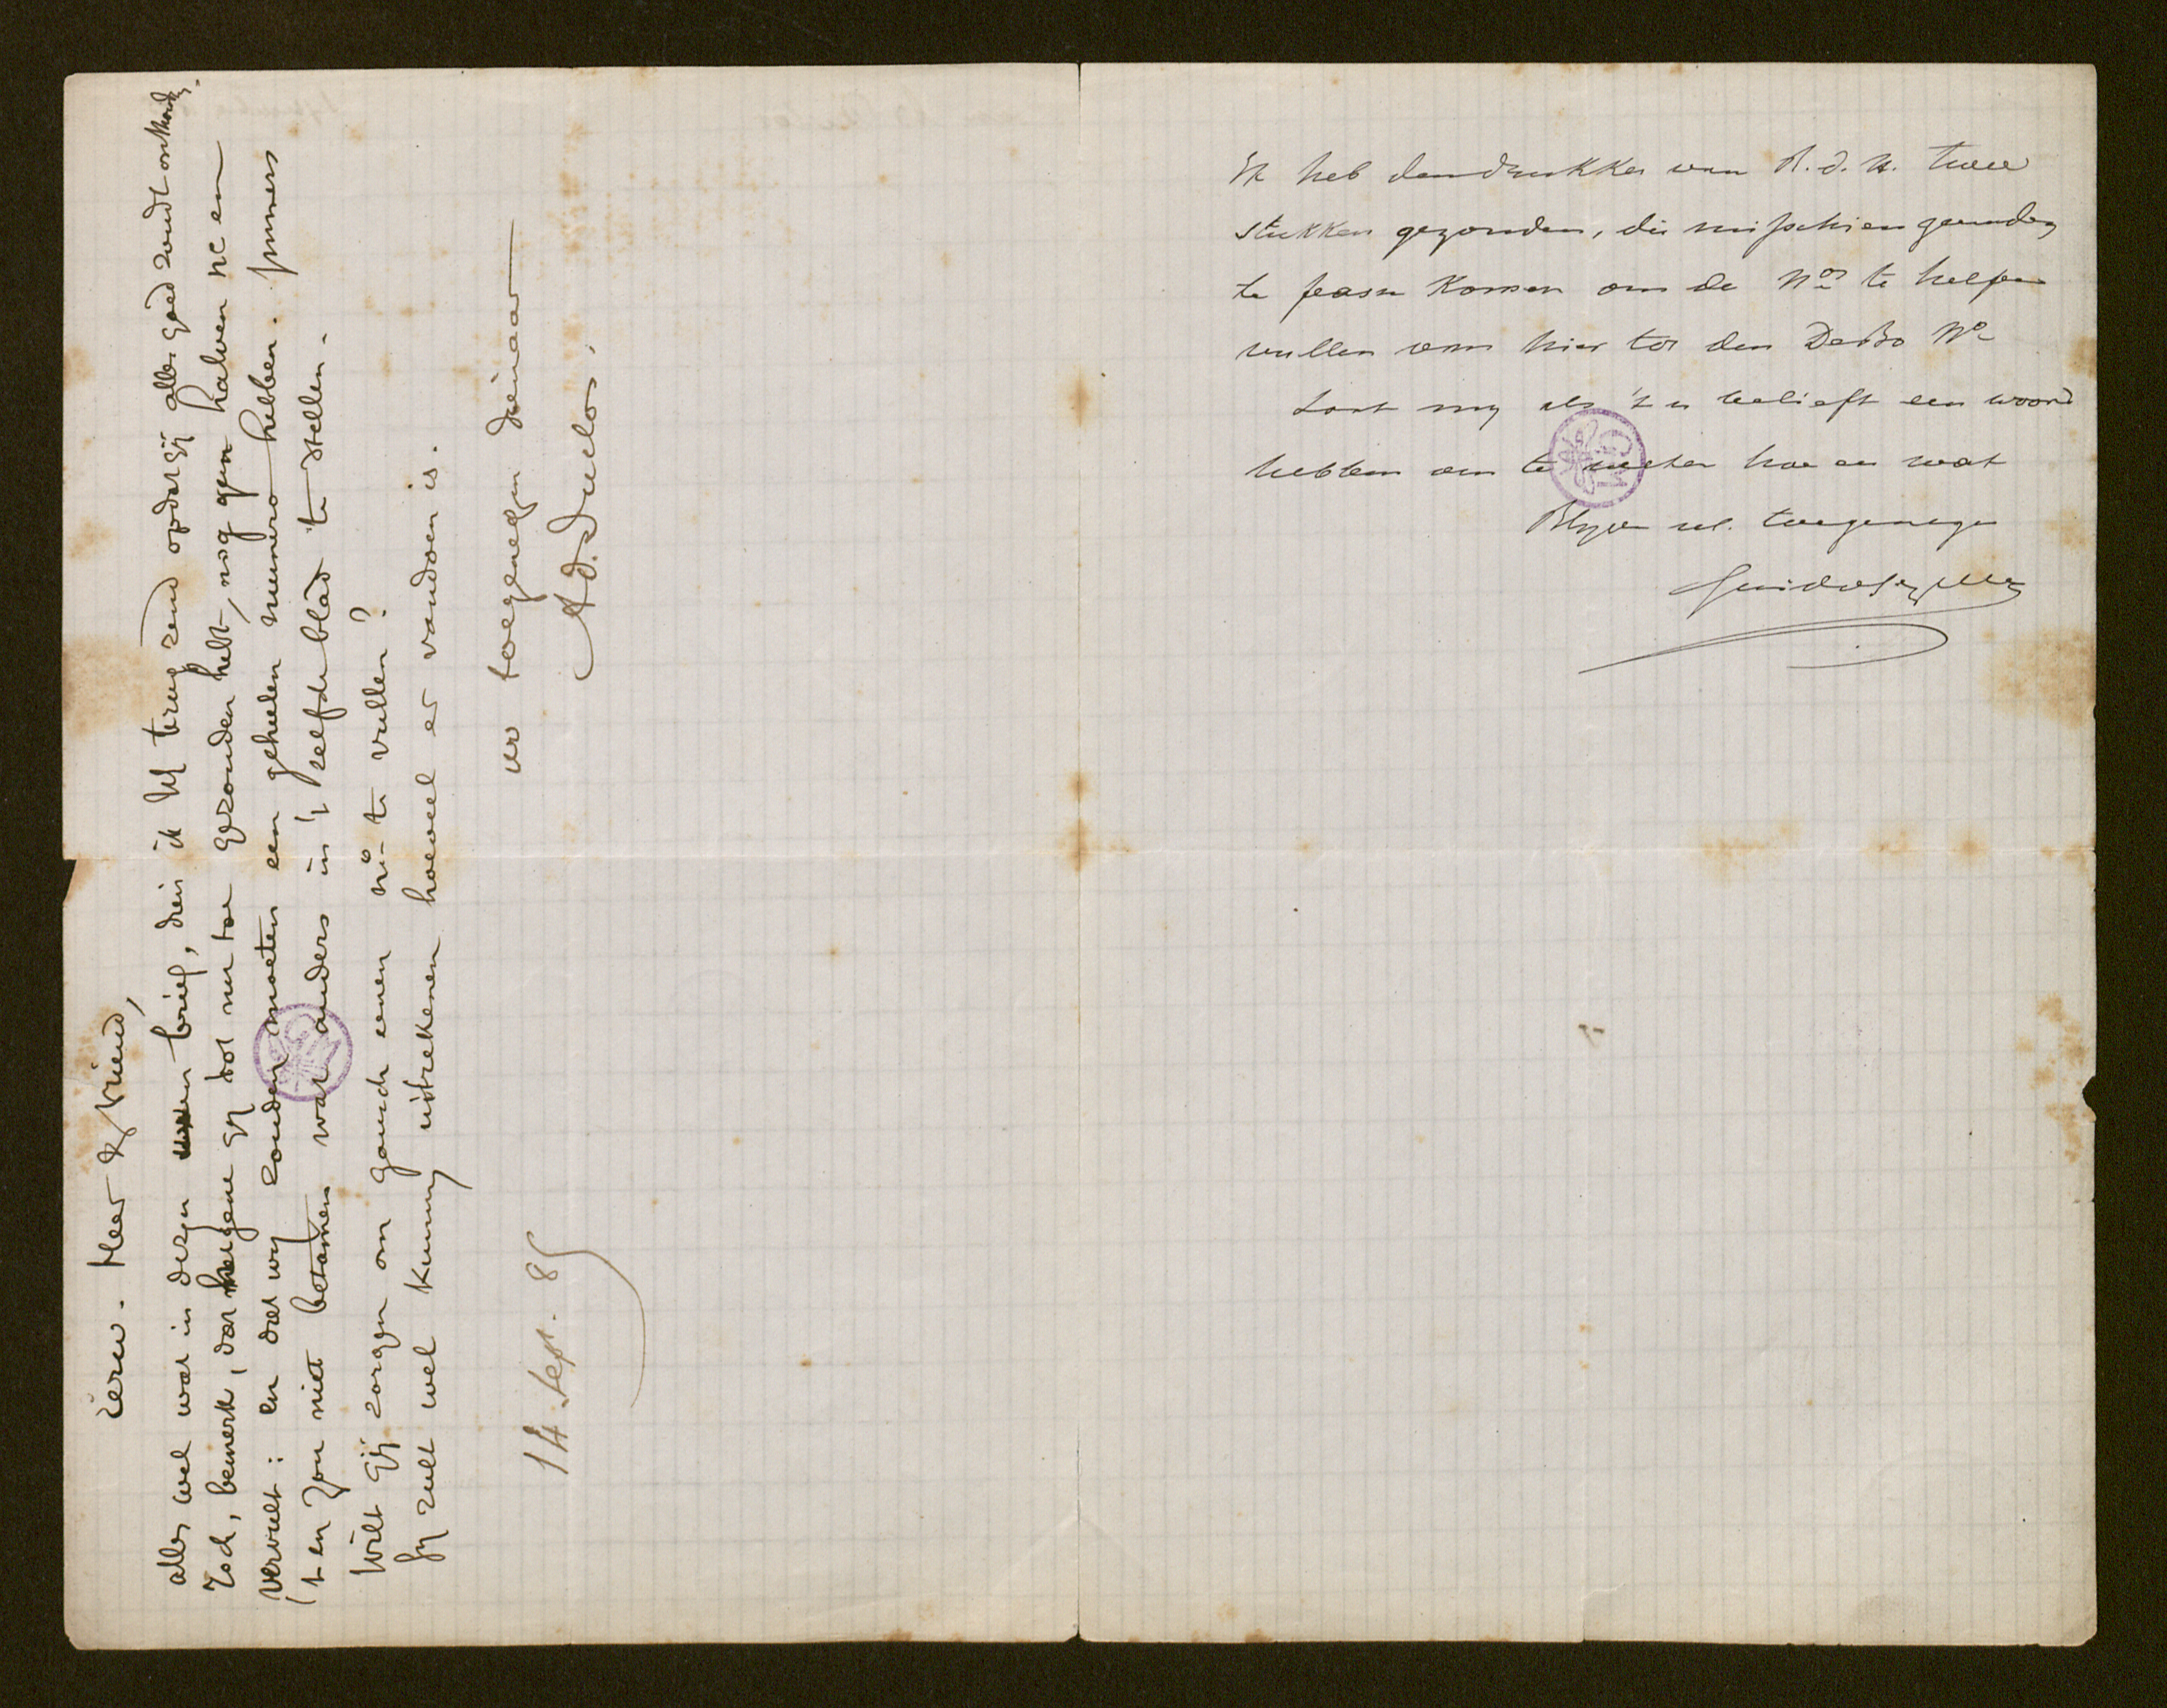 Eerw. Heer & Vriend,
alles wel wat in dezen brief, dien ik U terug zend opdat gij alles goed zoudt onthouden.
Toch, bemerk, dat hetgene gij tot nu toe gezonden hebt, nog geen halven nr en
vervult: en dat wij zouden moeten een geheelen numero hebben. Immers
't en zou niet betamen wat anders in 't zelfde blad te stellen.
Wilt gij zorgen om gansch eenen nr te vullen?
Gij zult wel kunnen uitrekenen hoeveel er vandoen is.
uw toegenegen dienaar
Ad. Duclos.
14. Sept. 85
Ik heb den drukker van R.d.H. twee
stukken gezonden, die misschien zouden
te passe komen om de Nos te helpen
vullen van hier tot den DeBo No
Laat my als 't u belieft een woord
hebben om te weten hoe en wat
Blyve ul. toegenegen
Guido Gezelle